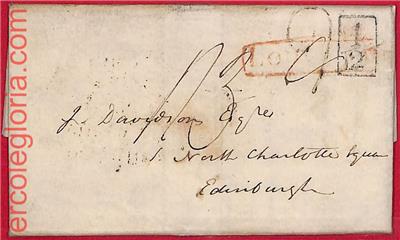 ercolegloria.com
1/2
J. Davidson Esqre
1 North Charlotte Square
Edinburgh